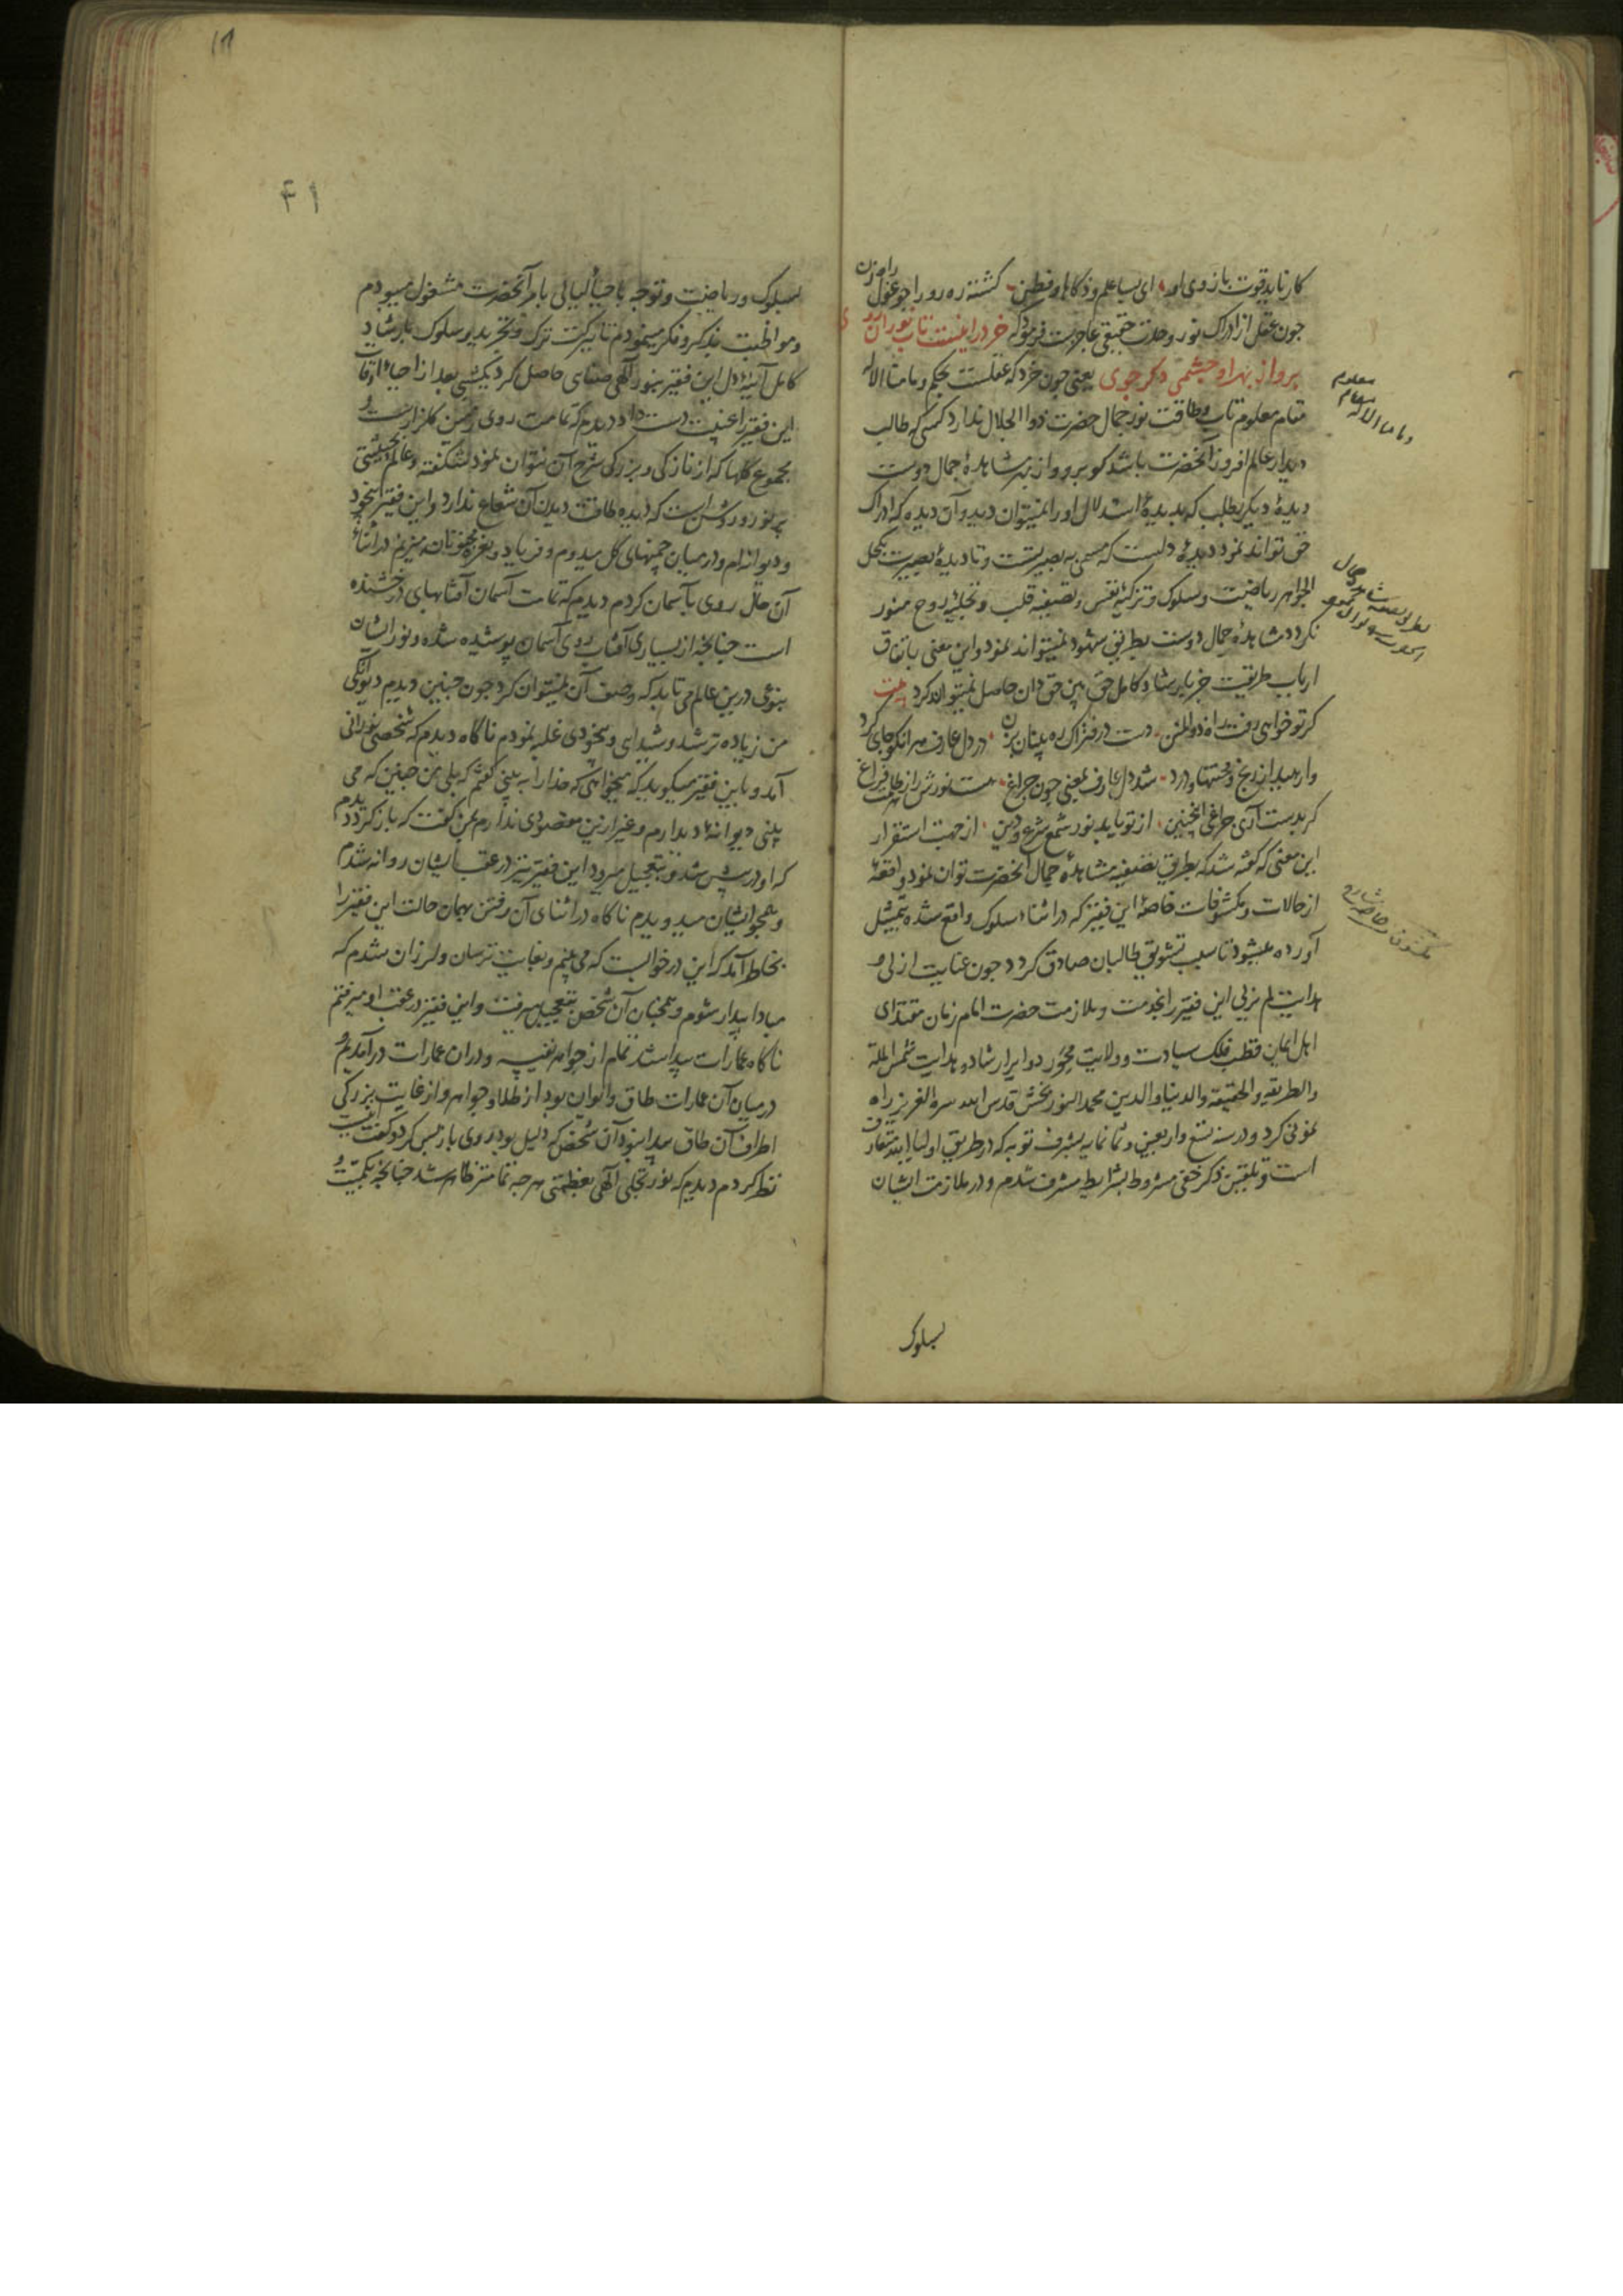 کار ناید قوت بازوی او ای بسا علم و ذکا و فطن گشته ره رو را چو غول راه زن
چون عقل از ادراک نور وحدت حقیقی عاجزست فرمود که خرد را نیست تاب نور آن روی
برو از بهر او چشمی دکر جوی یعنی چون خرد که عقلست بحکم و ما منا الا له
مقام معلوم تاب و طاقت نور جمال حضرت ذوالجلال ندارد کسی که طالب
دیدار عالم افروز آنحضرت باشد کو برو و از بهر مشاهدۀ جمال دوست
دیدۀ دیگر بطلب که بدیدۀ استدلال او را نمیتوان دید و آن دیده که ادراک
حق تواند نمود دیدۀ دلست که مسمی به بصیرتست و تا دیدۀ بصیرت بکحل
الجواهر ریاضت و سلوک و تزکیۀ نفس و تصفیه قلب و تجلیۀ روح منور
نکردد مشاهدۀ جمال دوست بطریق شهود نمیتواند نمود و این معنی باتفاق
ارباب طریقت جز بارشاد کامل حق بین حق دان حاصل نمیتوان کرد بیت
کر تو خواهی رفت راه ذوالمنن دست در فتراک ره بینان بزن در دل عارف هر آنکو جای کرد
وارهید از رنج و محنتها و درد شد دل عارف بمعنی چون چراغ هست نورش از ظلمت فراغ
کر بدست آری چراغی اینچنین از تو یابد نور شمع شرع و دین از جهت استقرار
این معنی که گفته شد که بطریق تصفیه مشاهدۀ جمال آنحضرت توان نمود واقعۀ
از حالات و مکشوفات خاصۀ این فقیر که در اثناء سلوک واقع شده بتمثیل
آورده میشود تا سبب تشویق طالبان صادق کردد چون عنایت ازلی و
هدایت لم یزلی این فقیر را بخدمت و ملازمت حضرت امام زمان مقتدای
اهل ایمان قطب فلک سیادت و ولایت محور دوایر ارشاد و هدایت شمس المله
والطریقه والحقیقه والدنیا والدین محمد النوربخش قدس الله سره العزیز راه
نمونی کرد و در سنه تسع و اربعین و ثمانمایه بشرف توبه که در طریق اولیاء الله متعارف
است و تلقین ذکر خفی مشروط بشرایط مشرف شدم و در ملازمت ایشان
بسلوک
معلوم
مقام
و ما منا الا له
بسلوک و ریاضت و توجه باحیاء لیالی بامر آنحضرت مشغول میبودم
و مواظبت بذکر و فکر مینمودم تا ببرکت ترک و تجرید و سلوک بارشاد
کامل آئینۀ دل این فقیر بنور آلهی صفای حاصل کرد یکشبی بعد از احیاء اوقات
این فقیر را غیبت دست داد دیدم که تمامت روی زمین کلزارست و
مجموع گلها که از نازکی و بزرکی شرح آن نتوان نمود شکفته و عالم بحیثیتی
پر نور و روشن است که دیده طاقت دیدن آن شعاع ندارد و این فقیر بیخود
و دیوانه ام و در میان چمنهای گل میدوم و فریاد و نعرۀ مجنونانه میزنم در اثناء
آن حال روی بآسمان کردم دیدم که تمامت آسمان آفتابهای درخشنده
است چنانچه از بسیاری آفتاب روی آسمان پوشیده شده و نور ایشان
بنوعی درین عالم می تابد که وصف آن نمیتوان کرد چون چنین دیدم دیوانگی
من زیاده تر شد و شیدای و بیخودی غلبه نمودم ناکاه دیدم که شخصی نورانی
آمد و باین فقیر میکوید که میخواهی که خدا را به بینی گفتم که بلی من چنین که می
بینی دیوانۀ دیدارم و غیر ازین مقصودی ندارم بمن گفت که باز کرد دیدم
که او در پیش شد و بتعجیل میرود این فقیر نیز در عقب ایشان روانه شدم
و همچو ایشان میدویدم ناکاه در اثنای آن رفتن بهمان حالت این فقیر را
بخاطر آمد که این در خوابست که می بینم و بغایت ترسان و لرزان شدم که
مبادا بیدار شوم و همچنان آن شخص بتعجیل میرفت و این فقیر در عقب او میرفتم
ناکاه عمارات پیدا شد تمام از جواهر نفیسه و در آن عمارات درآمدیم و
در میان آن عمارات طاق و ایوان بود از طلا و جواهر و از غایت بزرکی
اطراف آن طاق پیدا نبود آن شخص که دلیل بود روی باز پس کرد و گفت اینست
نظر کردم دیدم که نور تجلی آلهی بعظمتی هر چه تمامتر ظاهر شد چنانچه بکمیت و
۴۱